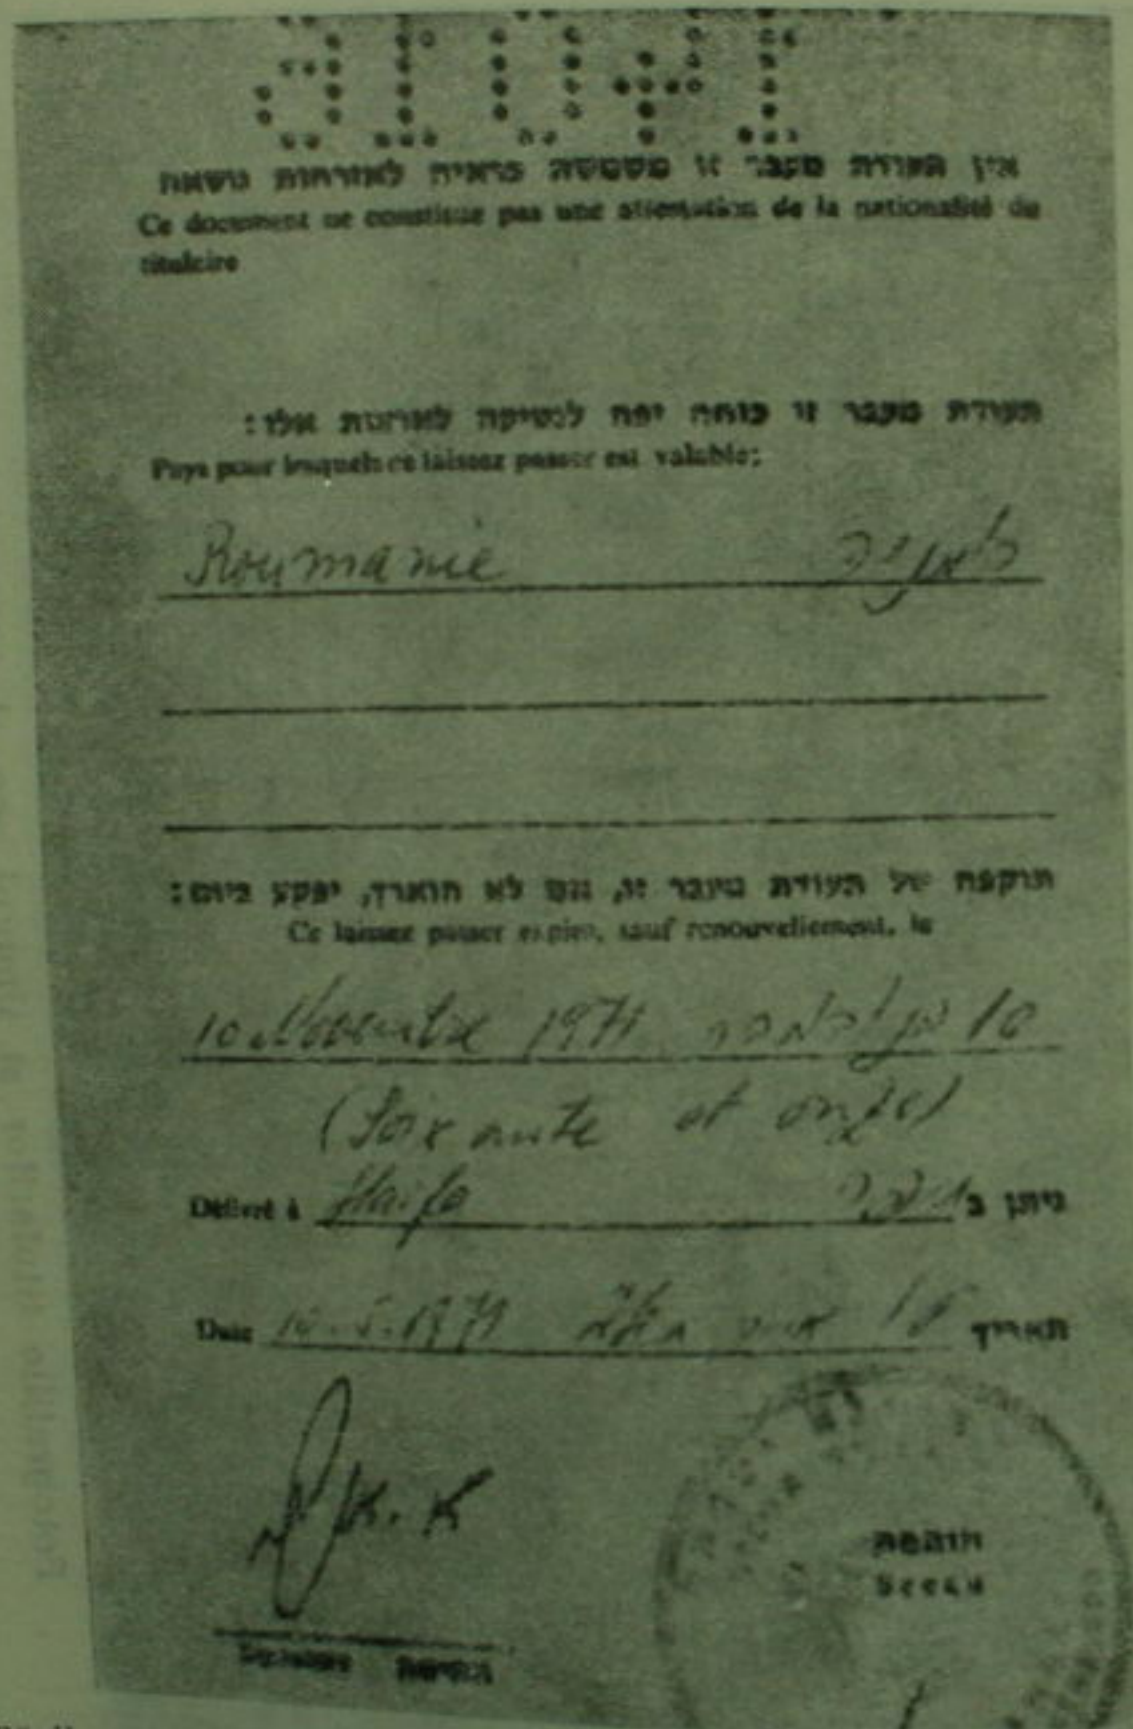 אין תעודת מעבר זו משמשת כראיה לאזרחות נושאה
Ce document ne constitue pas une attestation de la nationalité du
titulaire
תעודת מעבר זו כוחה יפה לנסיעה לארצות אלו:
Pays pour lesquels ce laissez passer est valable:
Roumanie רומניה
תוקפה של תעודת מעבר זו, אם לא תוארך, יפקע ביום:
Ce laissez passer expire, sauf renouvellement, le
10 Novembre 1971 10 בנובמבר
(Soixante et onze)
Délivré à Haifa ניתן ב חיפה
Date 1971 תאריך
חותמת
Sceau
Signature חתימה